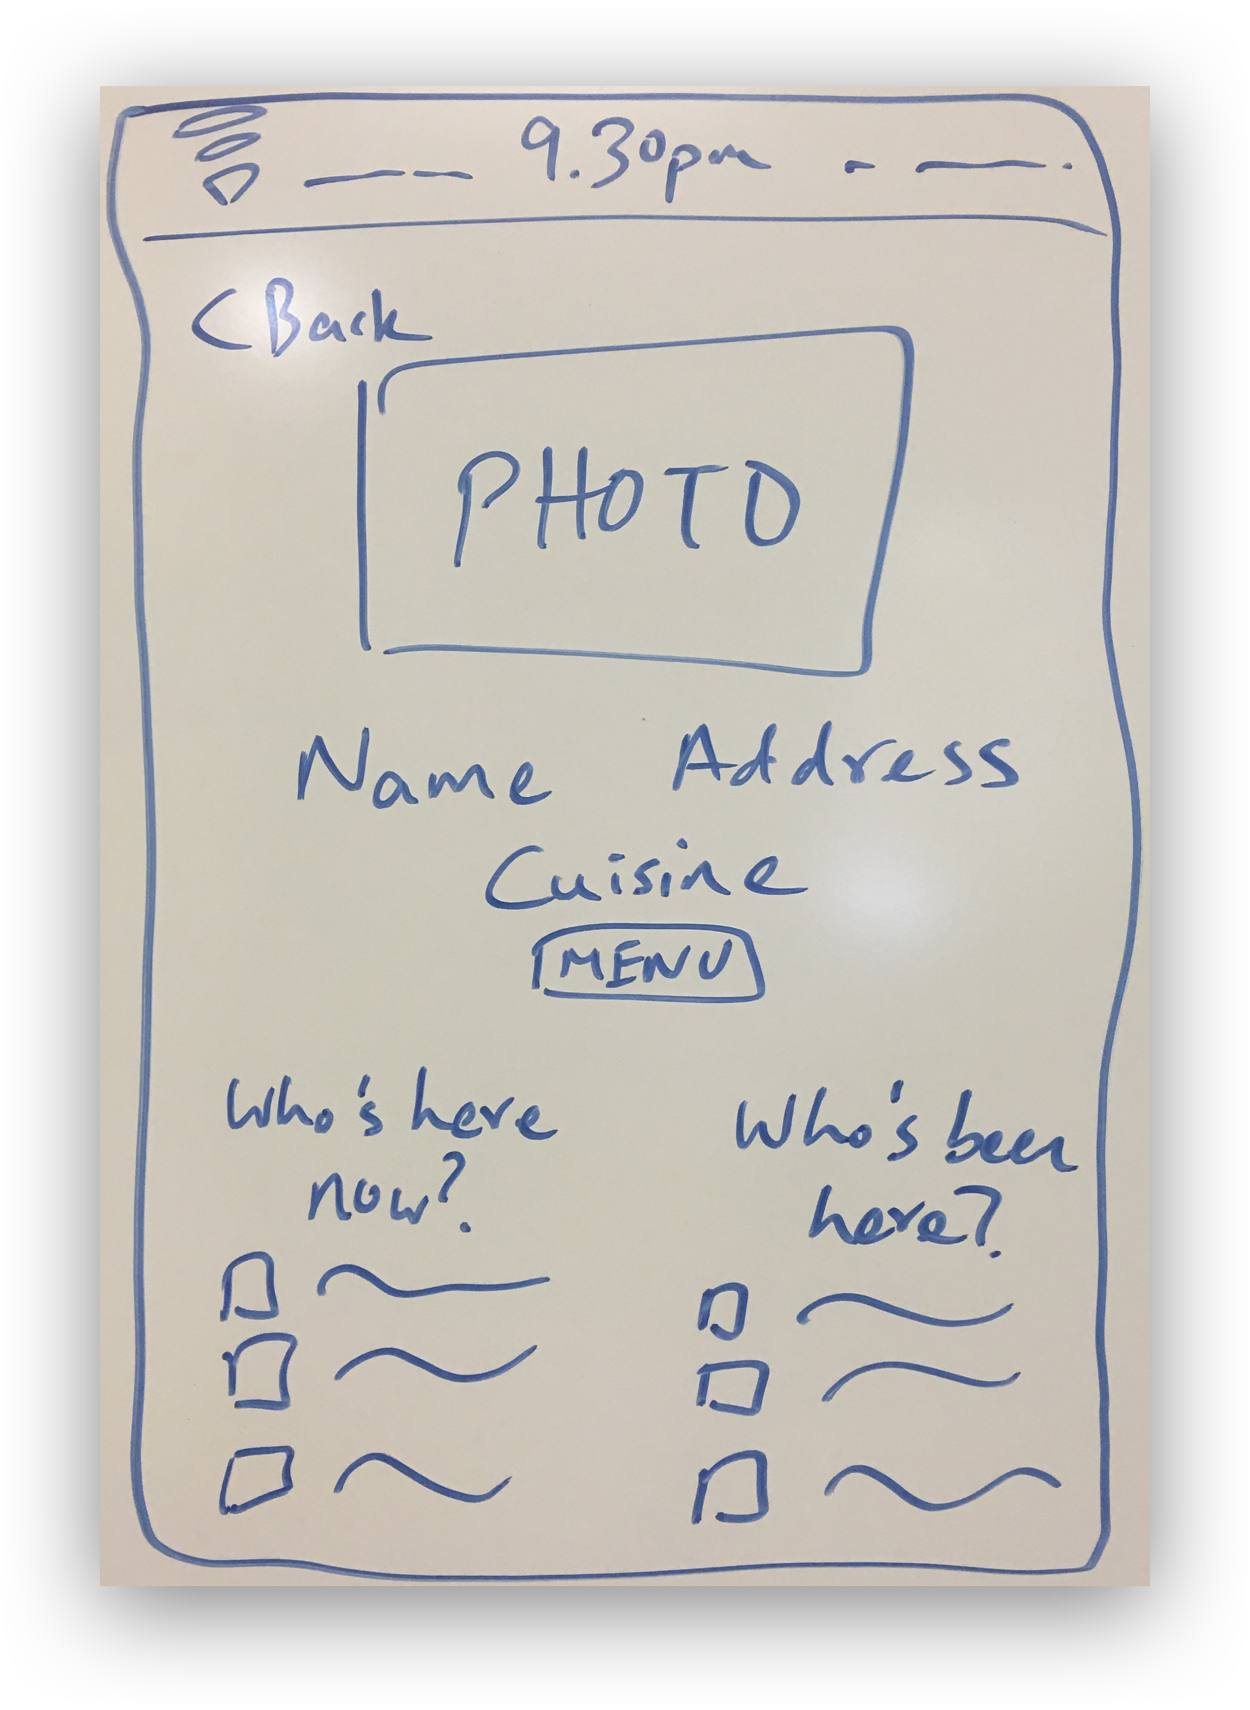 9.30pm
< Back
PHOTO
Name Address
Cuisine
MENU
Who's here
now?
Who's been
here?